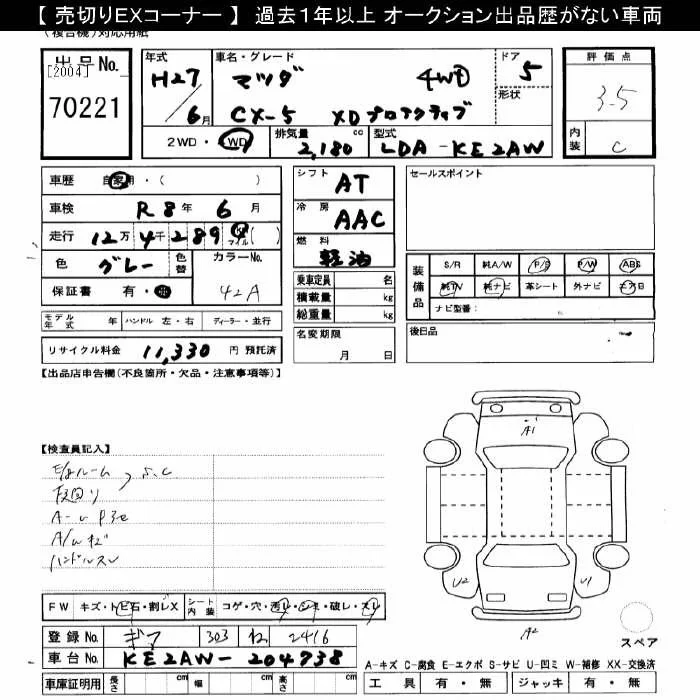 【 売切りEXコーナー 】 過去1年以上 オークション出品歴がない車両
(複合機)対応用紙
出品No.
[2004]
70221
年式 H27/6月
車名・グレード マツダ 4WD
CX-5 XD プロアクティブ
ドア 5
形状
評価点
3.5
内装 C
2WD・4WD
排気量 2,180 cc
型式 LDA-KE2AW
車歴 自家用・( )
車検 R8年 6月
走行 12万4千289 km マイル ( )
色 グレー 色替 カラーNo.
保証書 有・無 42A
モデル年式 年 ハンドル 左・右 ディーラー・並行
リサイクル料金 11,330 円 預託済
シフト AT
冷房 AAC
燃料 軽油
乗車定員 名
積載量 kg
総重量 kg
名変期限
月 日
セールスポイント
装備品 S/R 純A/W P/S P/W ABS
純TV 純ナビ 革シート 外ナビ エアB
ナビ型番:
後日品
【出品店申告欄(不良箇所・欠品・注意事項等)】
【検査員記入】
ハンドルスレ
A1
U2
U1
A2
スペア
FW キズ・トビ石・割レX シート内装 コゲ・穴・汚レ・シミ・破レ・スレ
登録No. 303 ね 2416
車台No. KE2AW-204738
車庫証明用 長さ cm 幅 cm 高さ cm
A-キズ C-腐食 E-エクボ S-サビ U-凹ミ W-補修 XX-交換済
工具 有・無 ジャッキ 有・無